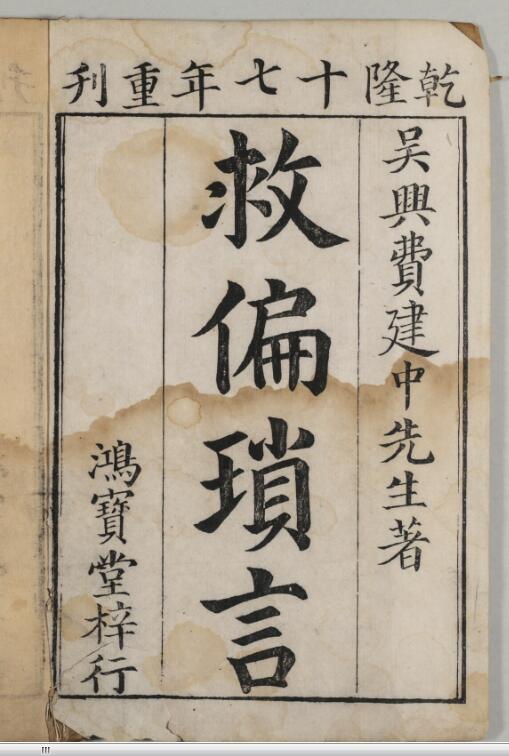 乾隆十七年重刋
吴興費建中先生著
救偏瑣言
鴻寶堂梓行